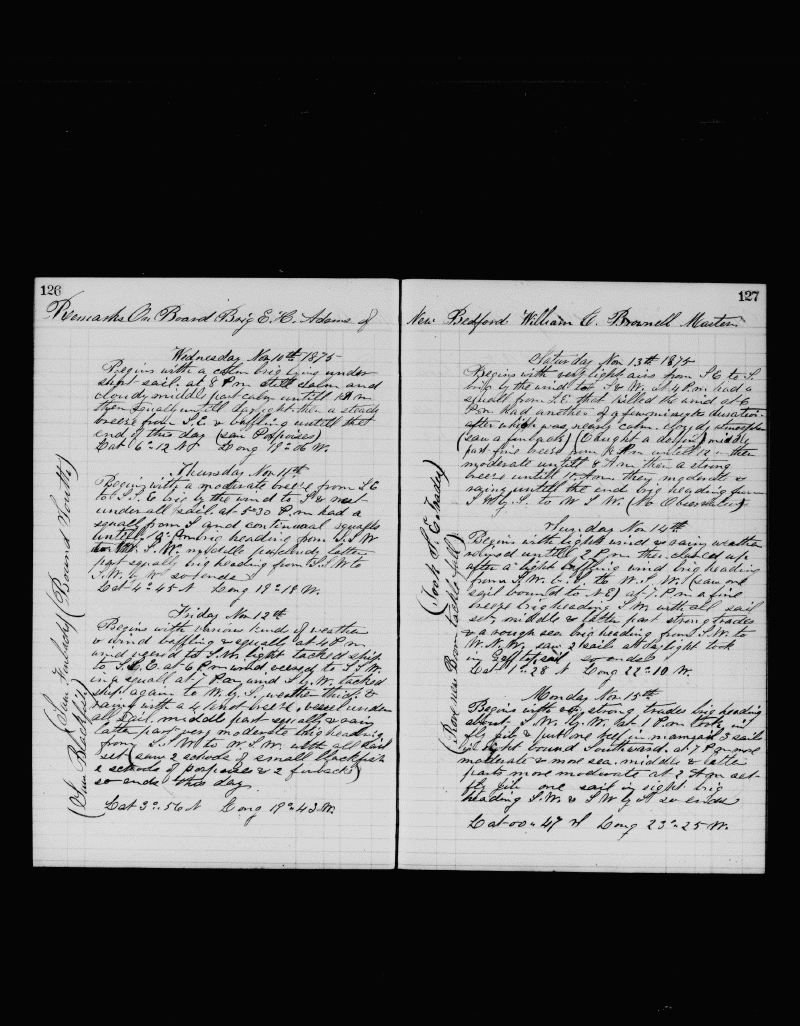 126
Remarks On Board Brig E. H. Adams of
Wednesday Nov 10th 1875
Begins with a calm brig lying under
short sail. at 8 P.m still calm and
cloudy middle part calm untill 12 m
then squaly untill daylight. then a steady
breeze from S.E. & baffling untill the
end of this day (saw Porpoises)
Lat 6" 12 N Long 19" 06 W.
Thursday Nov 11th
Begins with a moderate breeze from S E
to S.S.E brig by the wind to S & west
under all sail at 5"30 P.m had a
squall from S and continual squalls
untill brig heading from S.S W
to S.W. middle part cloudy latter
part squaly brig heading from S.S.W to
S.W. by W so ends
Lat 4" 45 N Long 19" 18 W.
Friday Nov 12th
Begins with various kinds of weather
& wind baffling & squalls at 4 P m
wind veered to S.W. light tacked ship
to S.S.E. at 6 P m wind veered to S.S W.
in a squall at 7 P.m wind S.by.W. tacked
ship again to W.by.S. weather thick &
rainy with a 4 knot breeze, vessel under
all sail. middle part squally & rainy
latter part very moderate brig heading
from S.S.W to W.S.W. with all sail
set (saw 2 schools of small blackfish
2 schools of porpoises & 2 finbacks)
so ends this day.
Lat 3" 56 N Long 19" 43 W.
(Saw Blackfish) (Saw Finbacks) (Bound South)
127
New Bedford William A. Brownell Master
Saturday Nov 13th 1875
Begins with very light airs from S E to S.
brig by the wind to S & W. at 4 P.m had a
squall from S.E that killed the wind at 6
P.m had another of a few minutes duration
after which was nearly calm cloudy atmosphere
(saw a finback) (Caught a dolphin) middle
part fine breeze from 8 P.m untill 12. then
moderate untill 8 A m then a strong
breeze untill 10 A m then moderate &
rainy untill the end brig heading from
S.W by S. to W S W. (No Observation)
Sunday Nov. 14th
Begins with light wind & rainy weather
untill 2 P.m then cleared up
after a light baffling wind brig heading
from S.W. to W.S.W. (saw one
sail bound to N.E) at 7. P.m a fine
breeze brig heading S.W. with all sail
set, middle & latter part strong trades
& a rough sea brig heading from S.W. to
W.S.W. saw 2 sails at daylight took
in Gaff topsail so ends
Lat 1" 28 N Long 22" 10 W.
Monday Nov. 15th
Begins with strong trades brig heading
about S.W. by.W. at 1 P.m took in
fly jib & put one reef in mainsail 3 sails
in sight bound Southward. at 7 P.m more
moderate & more sea. middle & latter
parts more moderate at 2 A m set
fly jib one sail in sight brig
heading S.W. & S W by S so ends
Lat 00" 47 N Long 23" 25 W.
(Rove new Boom tackle fall) (Took S.E. trades)